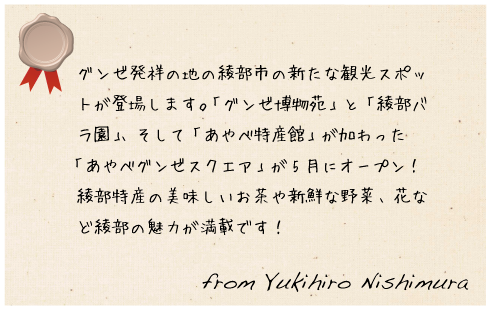 グンゼ発祥の地の綾部市の新たな観光スポッ
トが登場します。「グンゼ博物苑」と「綾部バ
ラ園」、そして「あやべ特産館」が加わった
「あやべグンゼスクエア」が５月にオープン！
綾部特産の美味しいお茶や新鮮な野菜、花な
ど綾部の魅力が満載です！
from Yukihiro Nishimura